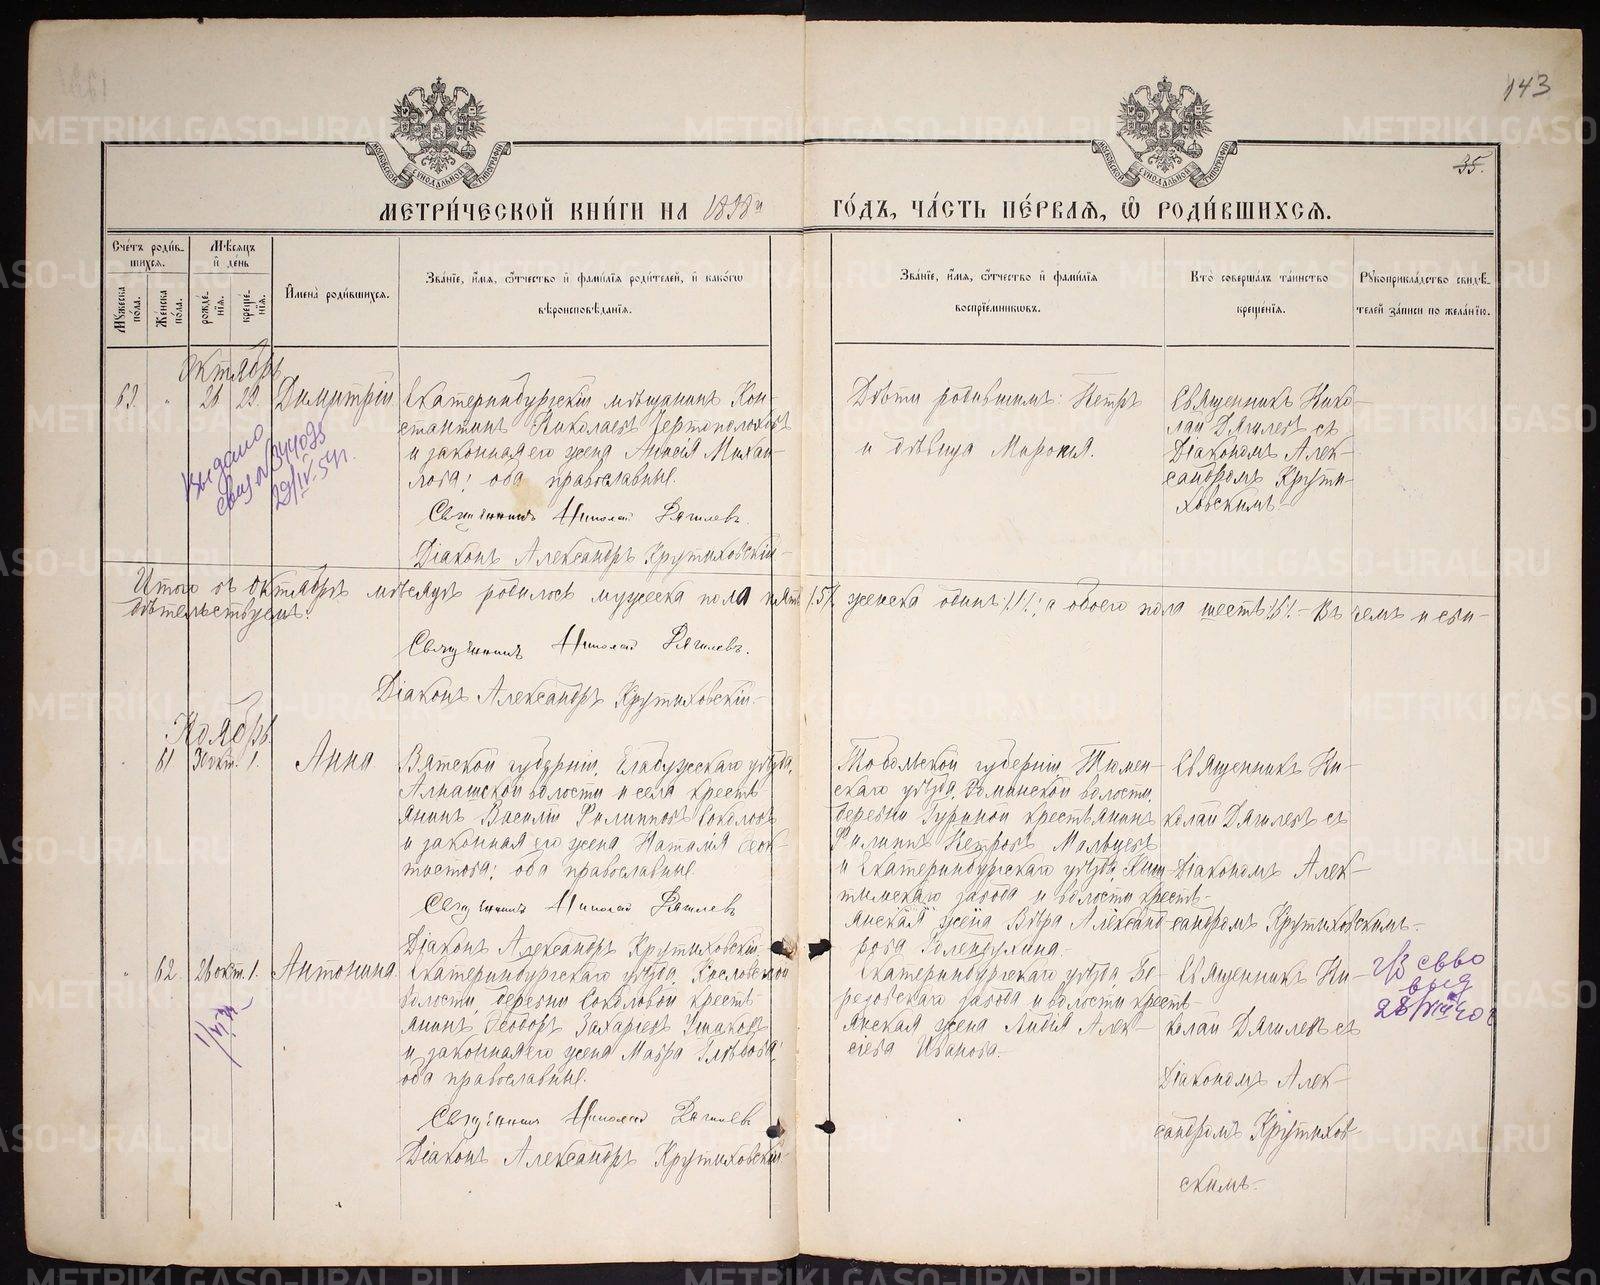 143
35.
МОСКОВСКОЙ СѴНОДАЛЬНОЙ ТИПОГРАФІИ
МОСКОВСКОЙ СѴНОДАЛЬНОЙ ТИПОГРАФІИ
МЕТРИ́ЧЕСКОЙ КНИ́ГИ НА 1898й ГО́ДЪ, ЧА́СТЬ ПЕ́РВАѦ, Ѡ РОДИ́ВШИХСѦ.
Сче́тъ роди́в-
шихсѧ.
Мꙋ́жеска по́ла.
Же́нска по́ла.
Мѣ́сѧцъ и де́нь
рожде́-
нїѧ.
креще́-
нїѧ.
И́мена̀ роди́вшихсѧ.
Зва́нїе, и́мѧ, ѻ́тчество и фами́лїѧ роди́телей, и како́гѡ
вѣроисповѣ́данїѧ.
Зва́нїе, и́мѧ, ѻ́тчество и фами́лїѧ
воспрїе́мникѡвъ.
Кто̀ соверша́лъ та́инство
креще́нїѧ.
Рꙋкоприкла́дство свидѣ́-
телей за́писи по жела́нїю.
Октябрь
63. " 26 29. Димитрій
Екатеринбургскій мѣщанинъ Кон-
стантинъ Николаевъ Чертополоховъ
и законная его жена Анисія Михаи-
лова; оба православные.
Священникъ Николай Дягилевъ.
Діаконъ Александръ Крутиховскій
Дѣти родившимъ: Петръ
и дѣвица Миропія.
Священникъ Нико-
лай Дягилевъ съ
Діакономъ Алек-
сандромъ Крути-
ховскимъ
Выдано
29/IV.54г.
Итого въ октябрѣ мѣсяцѣ родилось мужеска пола пять /5/, женска одинъ /1/; а обоего пола шесть /6/. – Въ чемъ и сви-
дѣтельствуемъ:
Священникъ Николай Дягилевъ.
Діаконъ Александръ Крутиховскій
Ноябрь.
61 30 окт. 1. Анна
Вятской губерніи, Елабужскаго уѣзда,
Алнашской волости и села кресть
янинъ Василій Филипповъ Соколовъ
и законная его жена Наталія Ѳеок-
тистова; оба православные.
Священникъ Николай Дягилевъ
Діаконъ Александръ Крутиховскій
Тобольской губерніи Тюмен-
скаго уѣзда, волости,
деревни крестьянинъ
Филиппъ Петровъ Мальцевъ
и Екатеринбургскаго уѣзда,
завода и волости кресть-
янская жена Вѣра Александ-
рова
Священникъ Ни-
колай Дягилевъ съ
Діакономъ Алек-
сандромъ Крутиховскимъ.
" 62. 26 окт. 1. Антонина
Екатеринбургскаго уѣзда, Кисловской
волости, деревни Соколовой кресть
янинъ Ѳеодоръ Захаріевъ Ушаковъ
и законная его жена Мавра Глѣбова;
оба православные.
Священникъ Николай Дягилевъ
Діаконъ Александръ Крутиховскій
Екатеринбургскаго уѣзда, Бе-
резовскаго завода и волости кресть-
янская жена Лидія Алек-
сіева Иванова.
Священникъ Ни-
колай Дягилевъ съ
Діакономъ Алек-
сандромъ Крутихов-
скимъ.
св-во
выд
28/VIII 40г